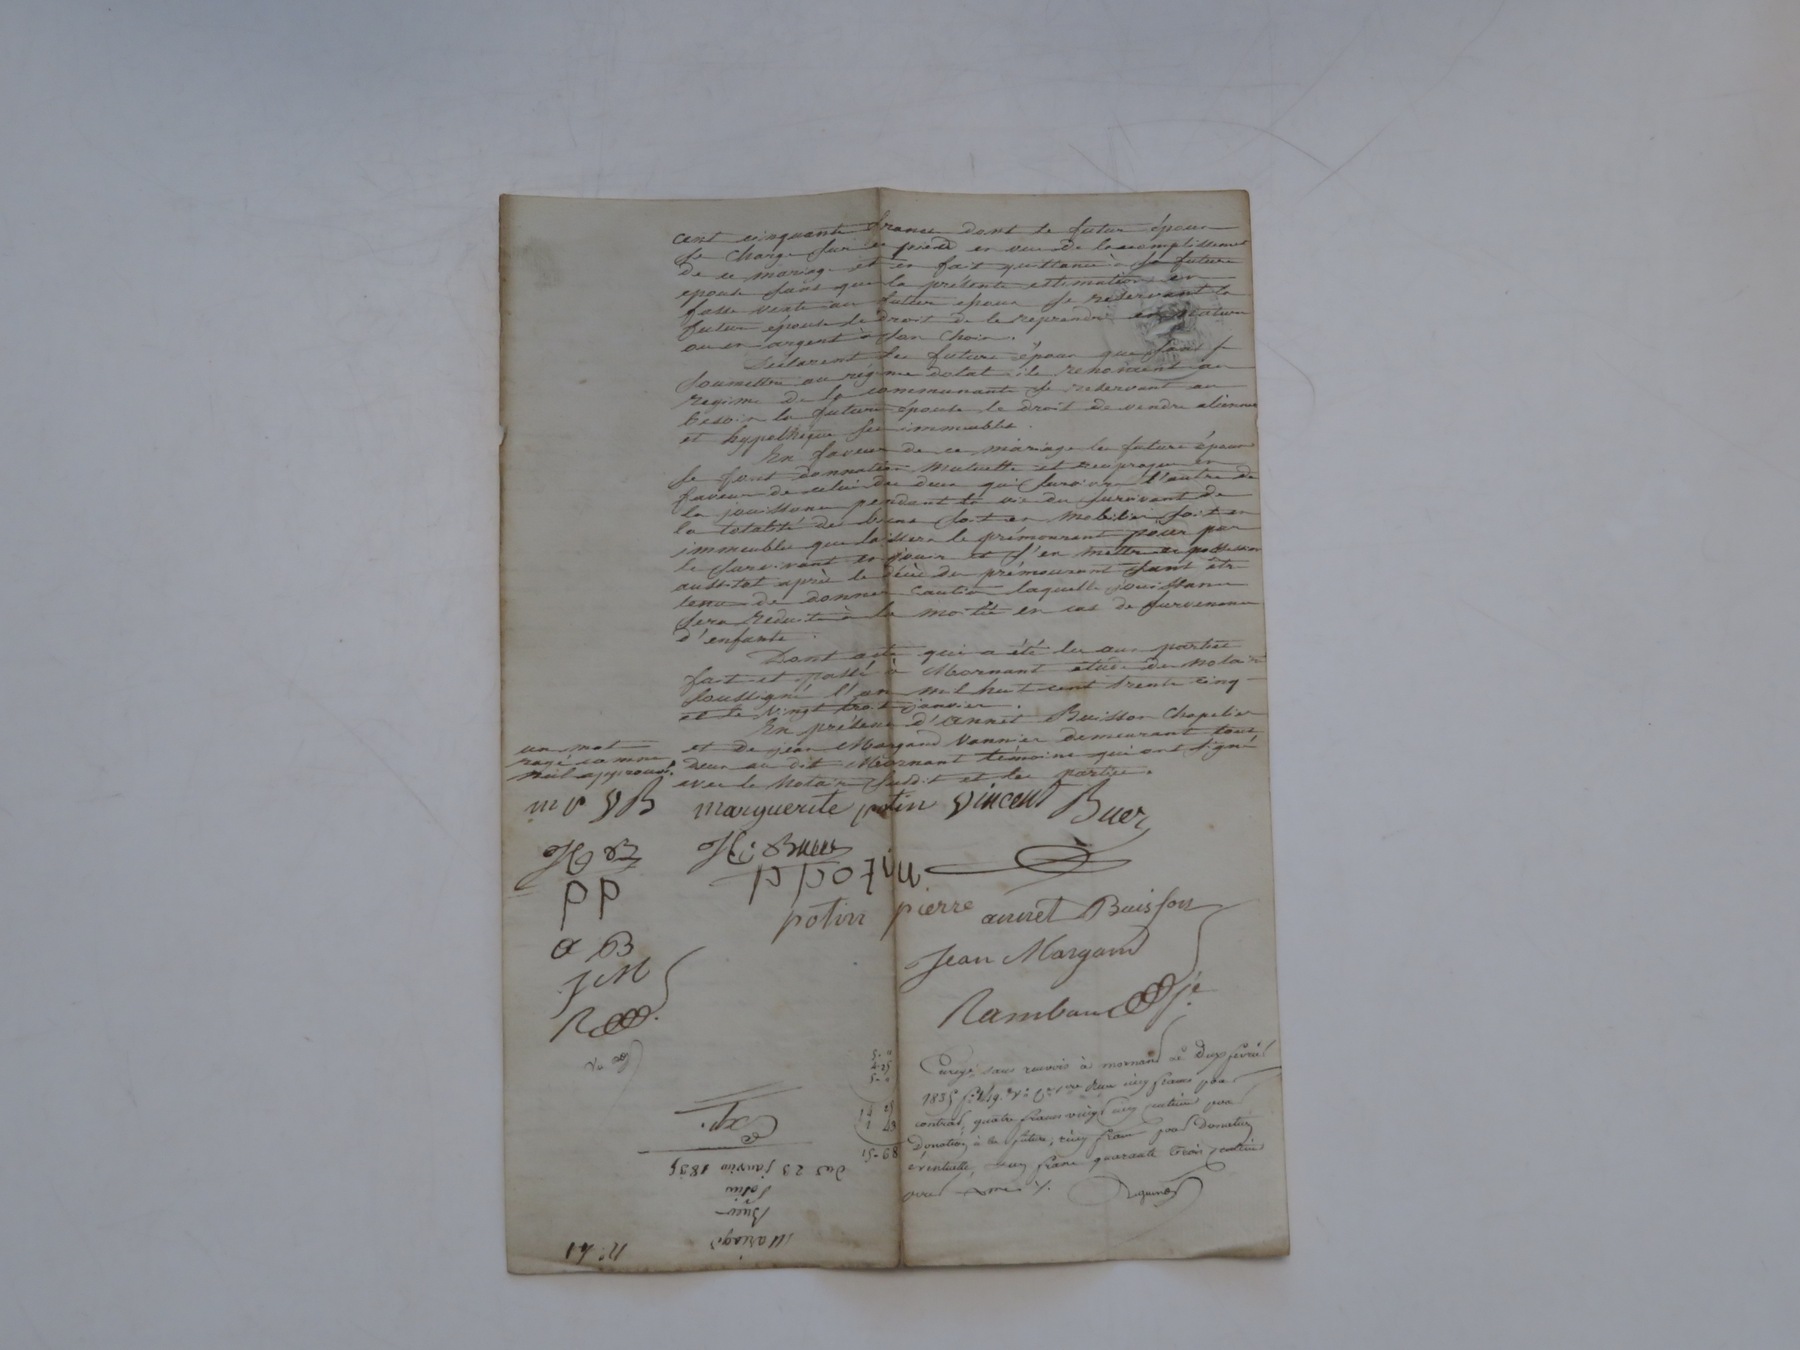 cent cinquante francs dont le futur époux
se charge sur ses pieds en vue de l'accomplissement
de ce mariage et en fait quittance à sa future
epouse sans que la présente estimation en
fasse vente au futur époux se réservant la
future épouse le droit de le reprendre en nature
ou en argent à son choix.
Déclarent les futurs époux que sans se
soumettre au régime dotal ils renoncent au
regime de la communauté se reservant au
besoin la future épouse le droit de vendre aliener
et hypothéquer ses immeubles.
En faveur de ce mariage les futurs époux
se font donnation mutuelle et reciproque en
faveur de celui des deux qui survivra l'autre de
la jouissance pendant la vie du survivant de
la totalité des biens soit en mobilier soit en
immeubles que laissera le prémourant pour par
le survivant en jouir et s'en mettre en possession
aussitot après le décès du prémourant sans être
tenu de donner caution laquelle jouissance
sera réduite à la moitié en cas de survenance
d'enfants.
Dont acte qui a été lu aux parties
fait et passé à Mornant étude du notaire
soussigné l'an mil huit cent trente cinq
et le vingt trois janvier.
En présence d'annet Buisson chapelier
et de jean Margand vannier demeurant tous
deux au dit Mornant témoins qui ont signé
avec le notaire susdit et les parties.
un mot
rayé comme
nul approuvé.
m p V B
marguerite potin vincent Buer
H: Buer
p potin
potin pierre
annet Buisson
Jean Margand
Rambau
p p
a B
J M
Enregé sans renvois à mornant le Deux février
1835 f° 149 r° cinq francs pour
contrat, quatre francs vingt cinq centimes pour
Donation à la future, cinq francs pour Donation
éventuelle, un franc quarante trois centimes
pour
Exp.
Du 23 janvier 1835
Potin
Buer
Mariage
N° 41